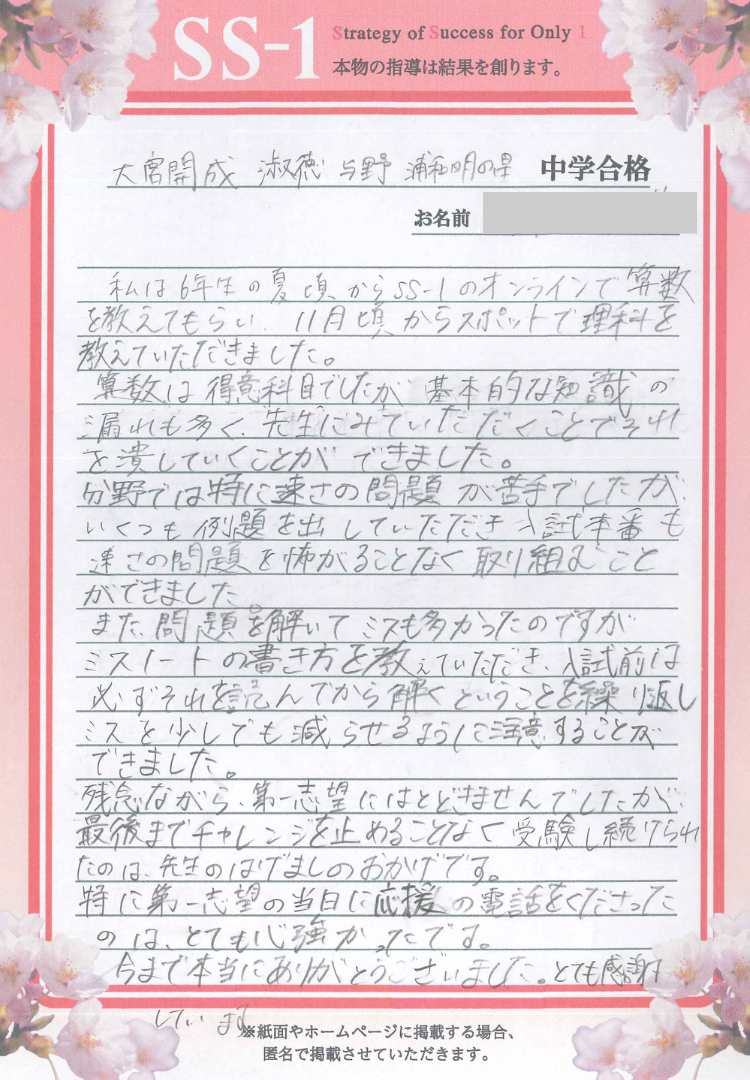 SS-1
Strategy of Success for Only 1
本物の指導は結果を創ります。
大宮開成 淑徳与野 浦和明の星 中学合格
お名前
私は6年生の夏頃からSS-1のオンラインで算数
を教えてもらい、11月頃からスポットで理科を
教えていただきました。
算数は得意科目でしたが、基本的な知識の
漏れも多く、先生にみていただくことでそれ
を潰していくことができました。
分野では特に速さの問題が苦手でしたが、
いくつも例題を出していただき入試本番も
速さの問題を怖がることなく取り組むこと
ができました
また、問題を解いてミスも多かったのですが
ミスノートの書き方を教えていただき、入試前は
必ずそれを読んでから解くということを繰り返し
ミスを少しでも減らせるように注意することが
できました。
残念ながら、第一志望にはとどきませんでしたが、
最後までチャレンジを止めることなく受験し続けられ
たのは、先生のはげましのおかげです。
特に第一志望の当日に応援の電話をくださった
のは、とても心強かったです。
今まで本当にありがとうございました。とても感謝
しています
※紙面やホームページに掲載する場合、
匿名で掲載させていただきます。